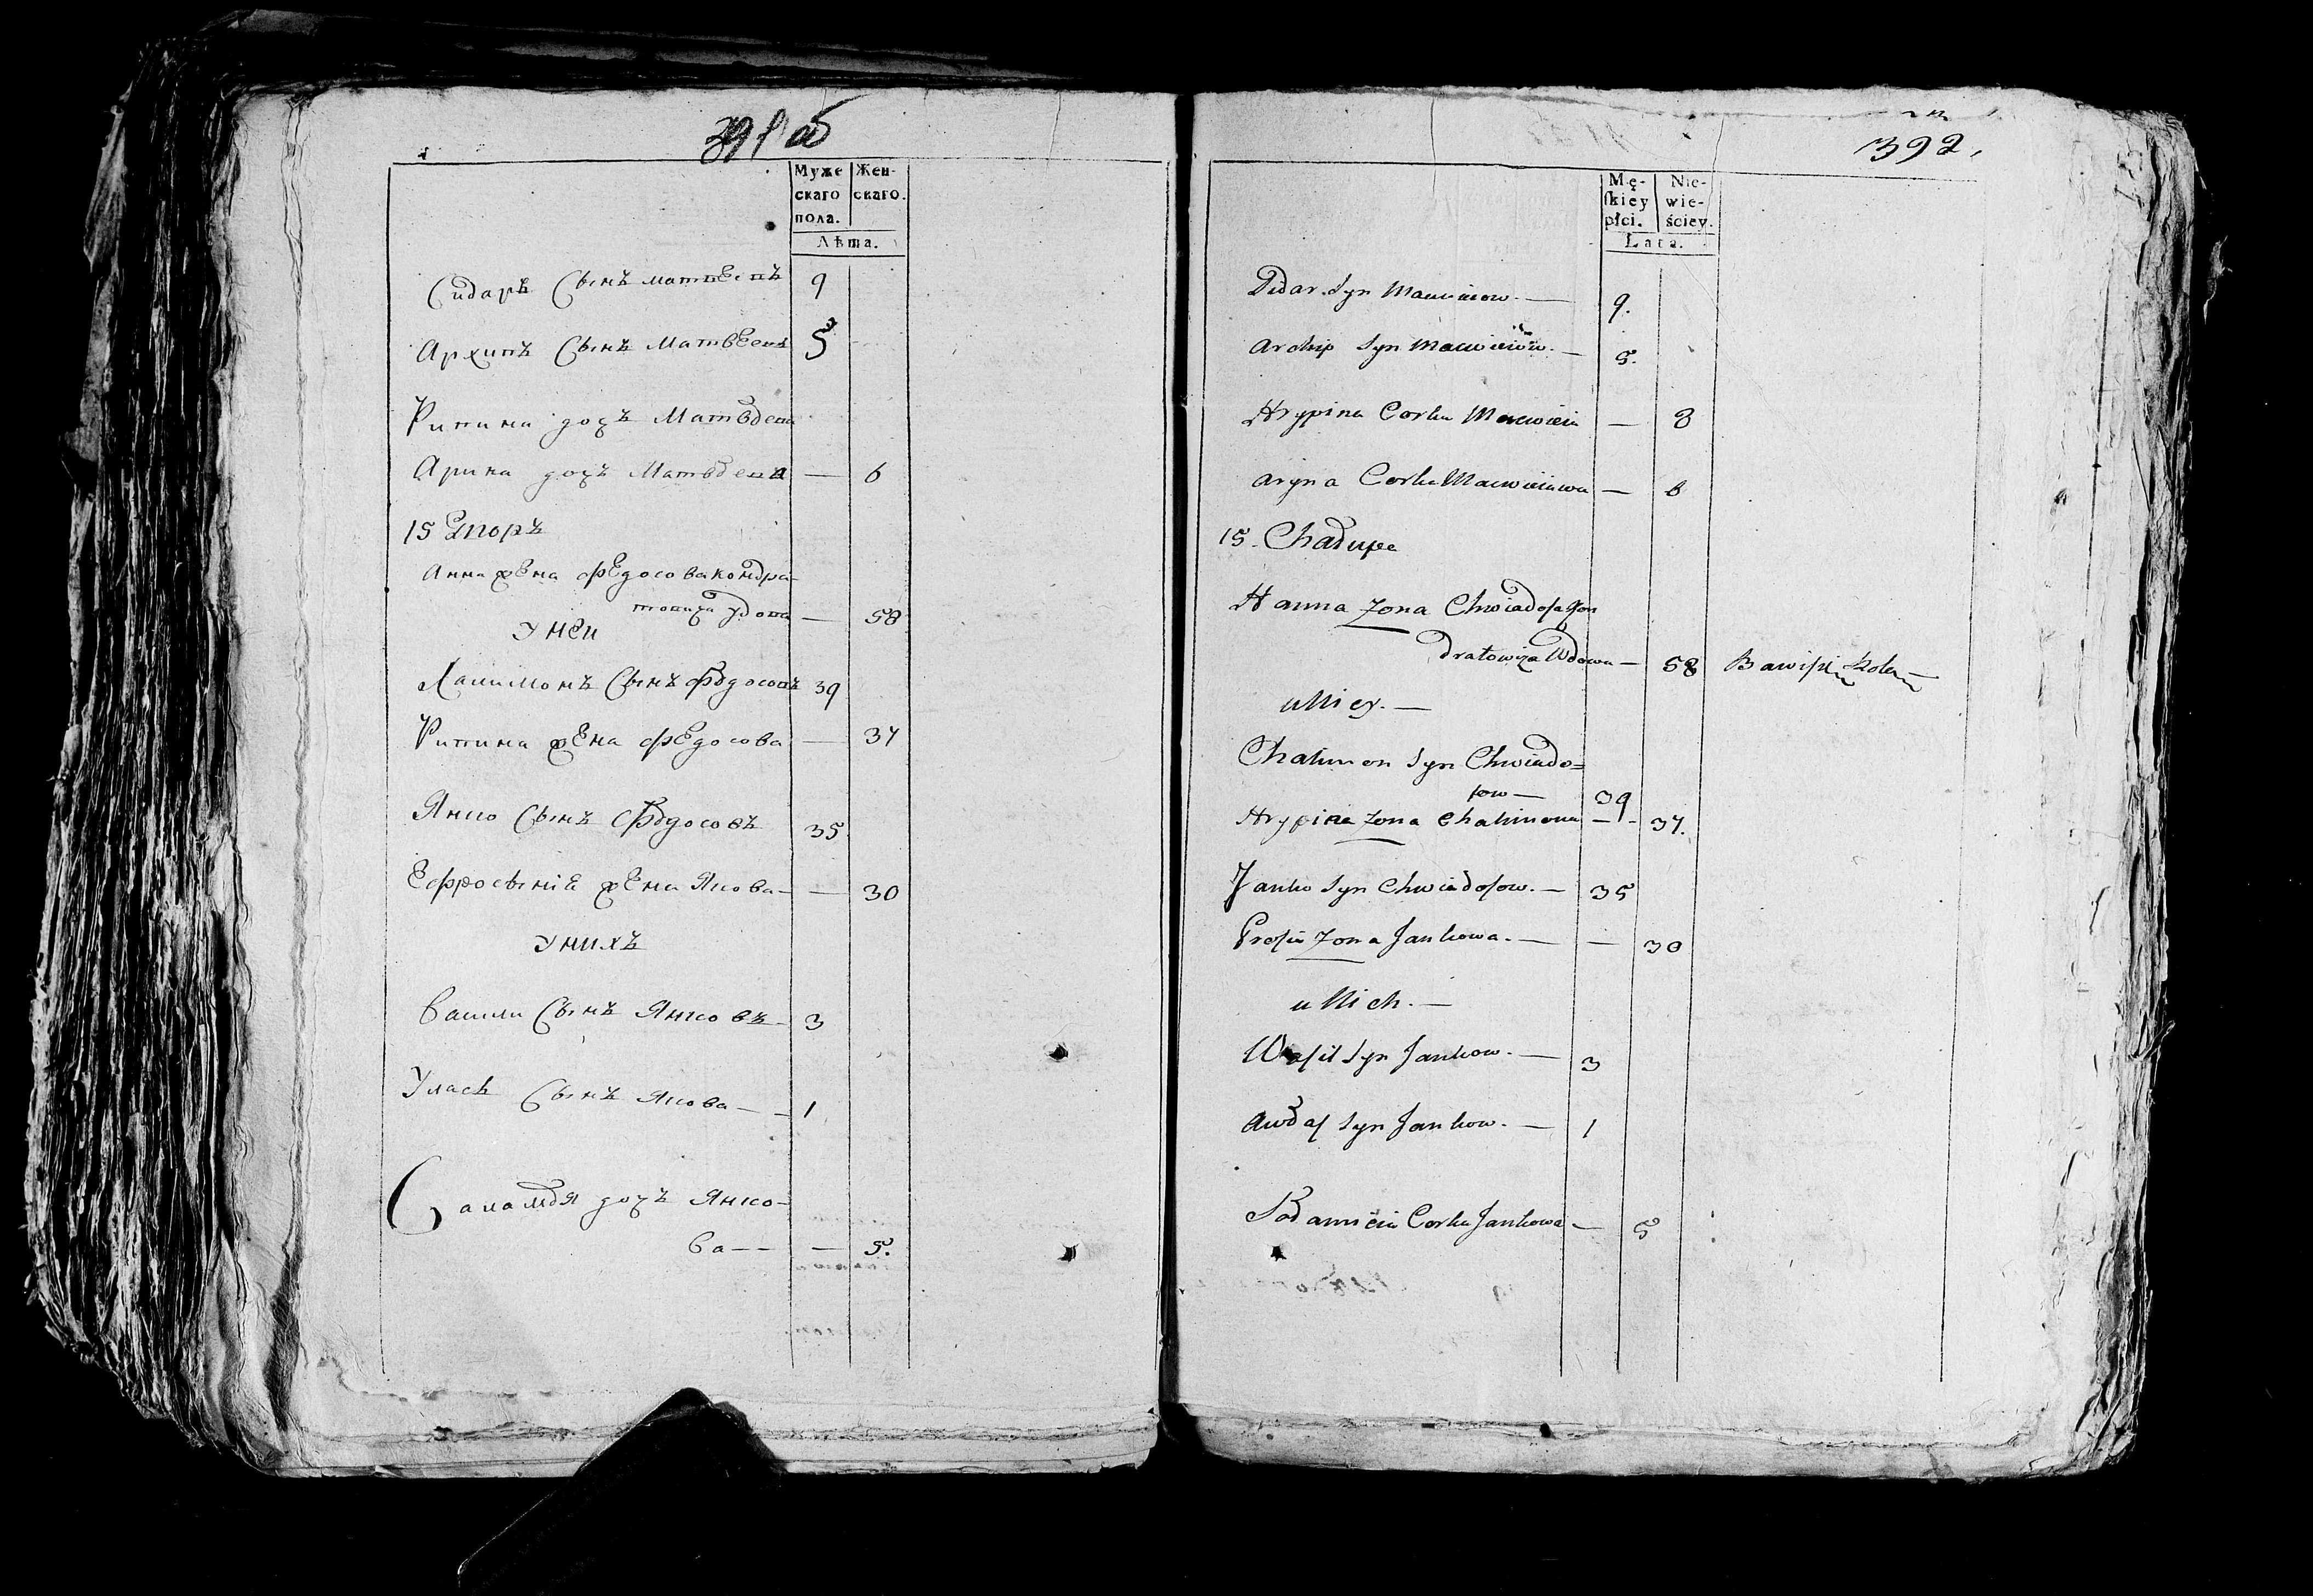 391 об
Муже
скаго
пола.
Жен-
скаго.
Лѣта.
Сидаръ Сынъ матвѣевъ 9
Архипъ Сынъ Матвѣевъ 5
Рипина доцъ Матвѣева
Арина доцъ Матвѣева — 6
15 Дворъ
Анна жена Федосова кондра-
товича удова — 58
У неи
Халимонъ Сынъ Федосовъ 39
Рипина жена Федосова — 37
Янко Сынъ Федосовъ 35
Ефросыніе жена Янкова — — 30
У нихъ
Васили Сынъ Янковъ 3
Уласъ Сынъ Янкова — — 1
Саламѣя доцъ Янко-
ва — — — 5.
392.
Mę-
ſkiey
płci.
Nie-
wie-
ściey.
Lata.
Sidar Syn Macwieiow. — 9.
Archip Syn Macwieiow. — 5.
Hrypina Corka Macwieia — 8
Aryna Corka Macwieiowa — 6
15. Chałupa
Hanna Zona Chwiadosa Kon
dratowiza Wdowa — 58
u Niey. —
Chalimon Syn Chwiado=
sow — 39
Hrypina Zona Chalimona — - 37.
Janko Syn Chwiadosow. — 35
Prosia Zona Jankowa. — — 30
u Nich. —
Wasil Syn Jankow. — 3
Syn Jankow. — 1
Corka Jankowa — 5